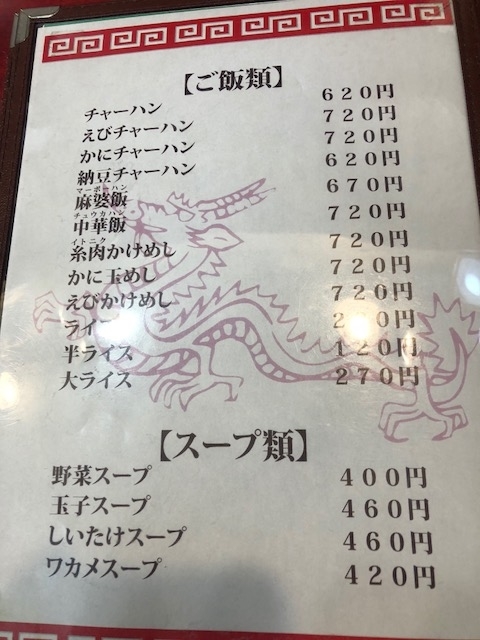 【ご飯類】
チャーハン 620円
えびチャーハン 720円
かにチャーハン 720円
納豆チャーハン 620円
マーボーハン
麻婆飯 670円
チュウカハン
中華飯 720円
イトニク
糸肉かけめし 720円
かに玉めし 720円
えびかけめし 720円
ライス
半ライス 120円
大ライス 270円
【スープ類】
野菜スープ 400円
玉子スープ 460円
しいたけスープ 460円
ワカメスープ 420円